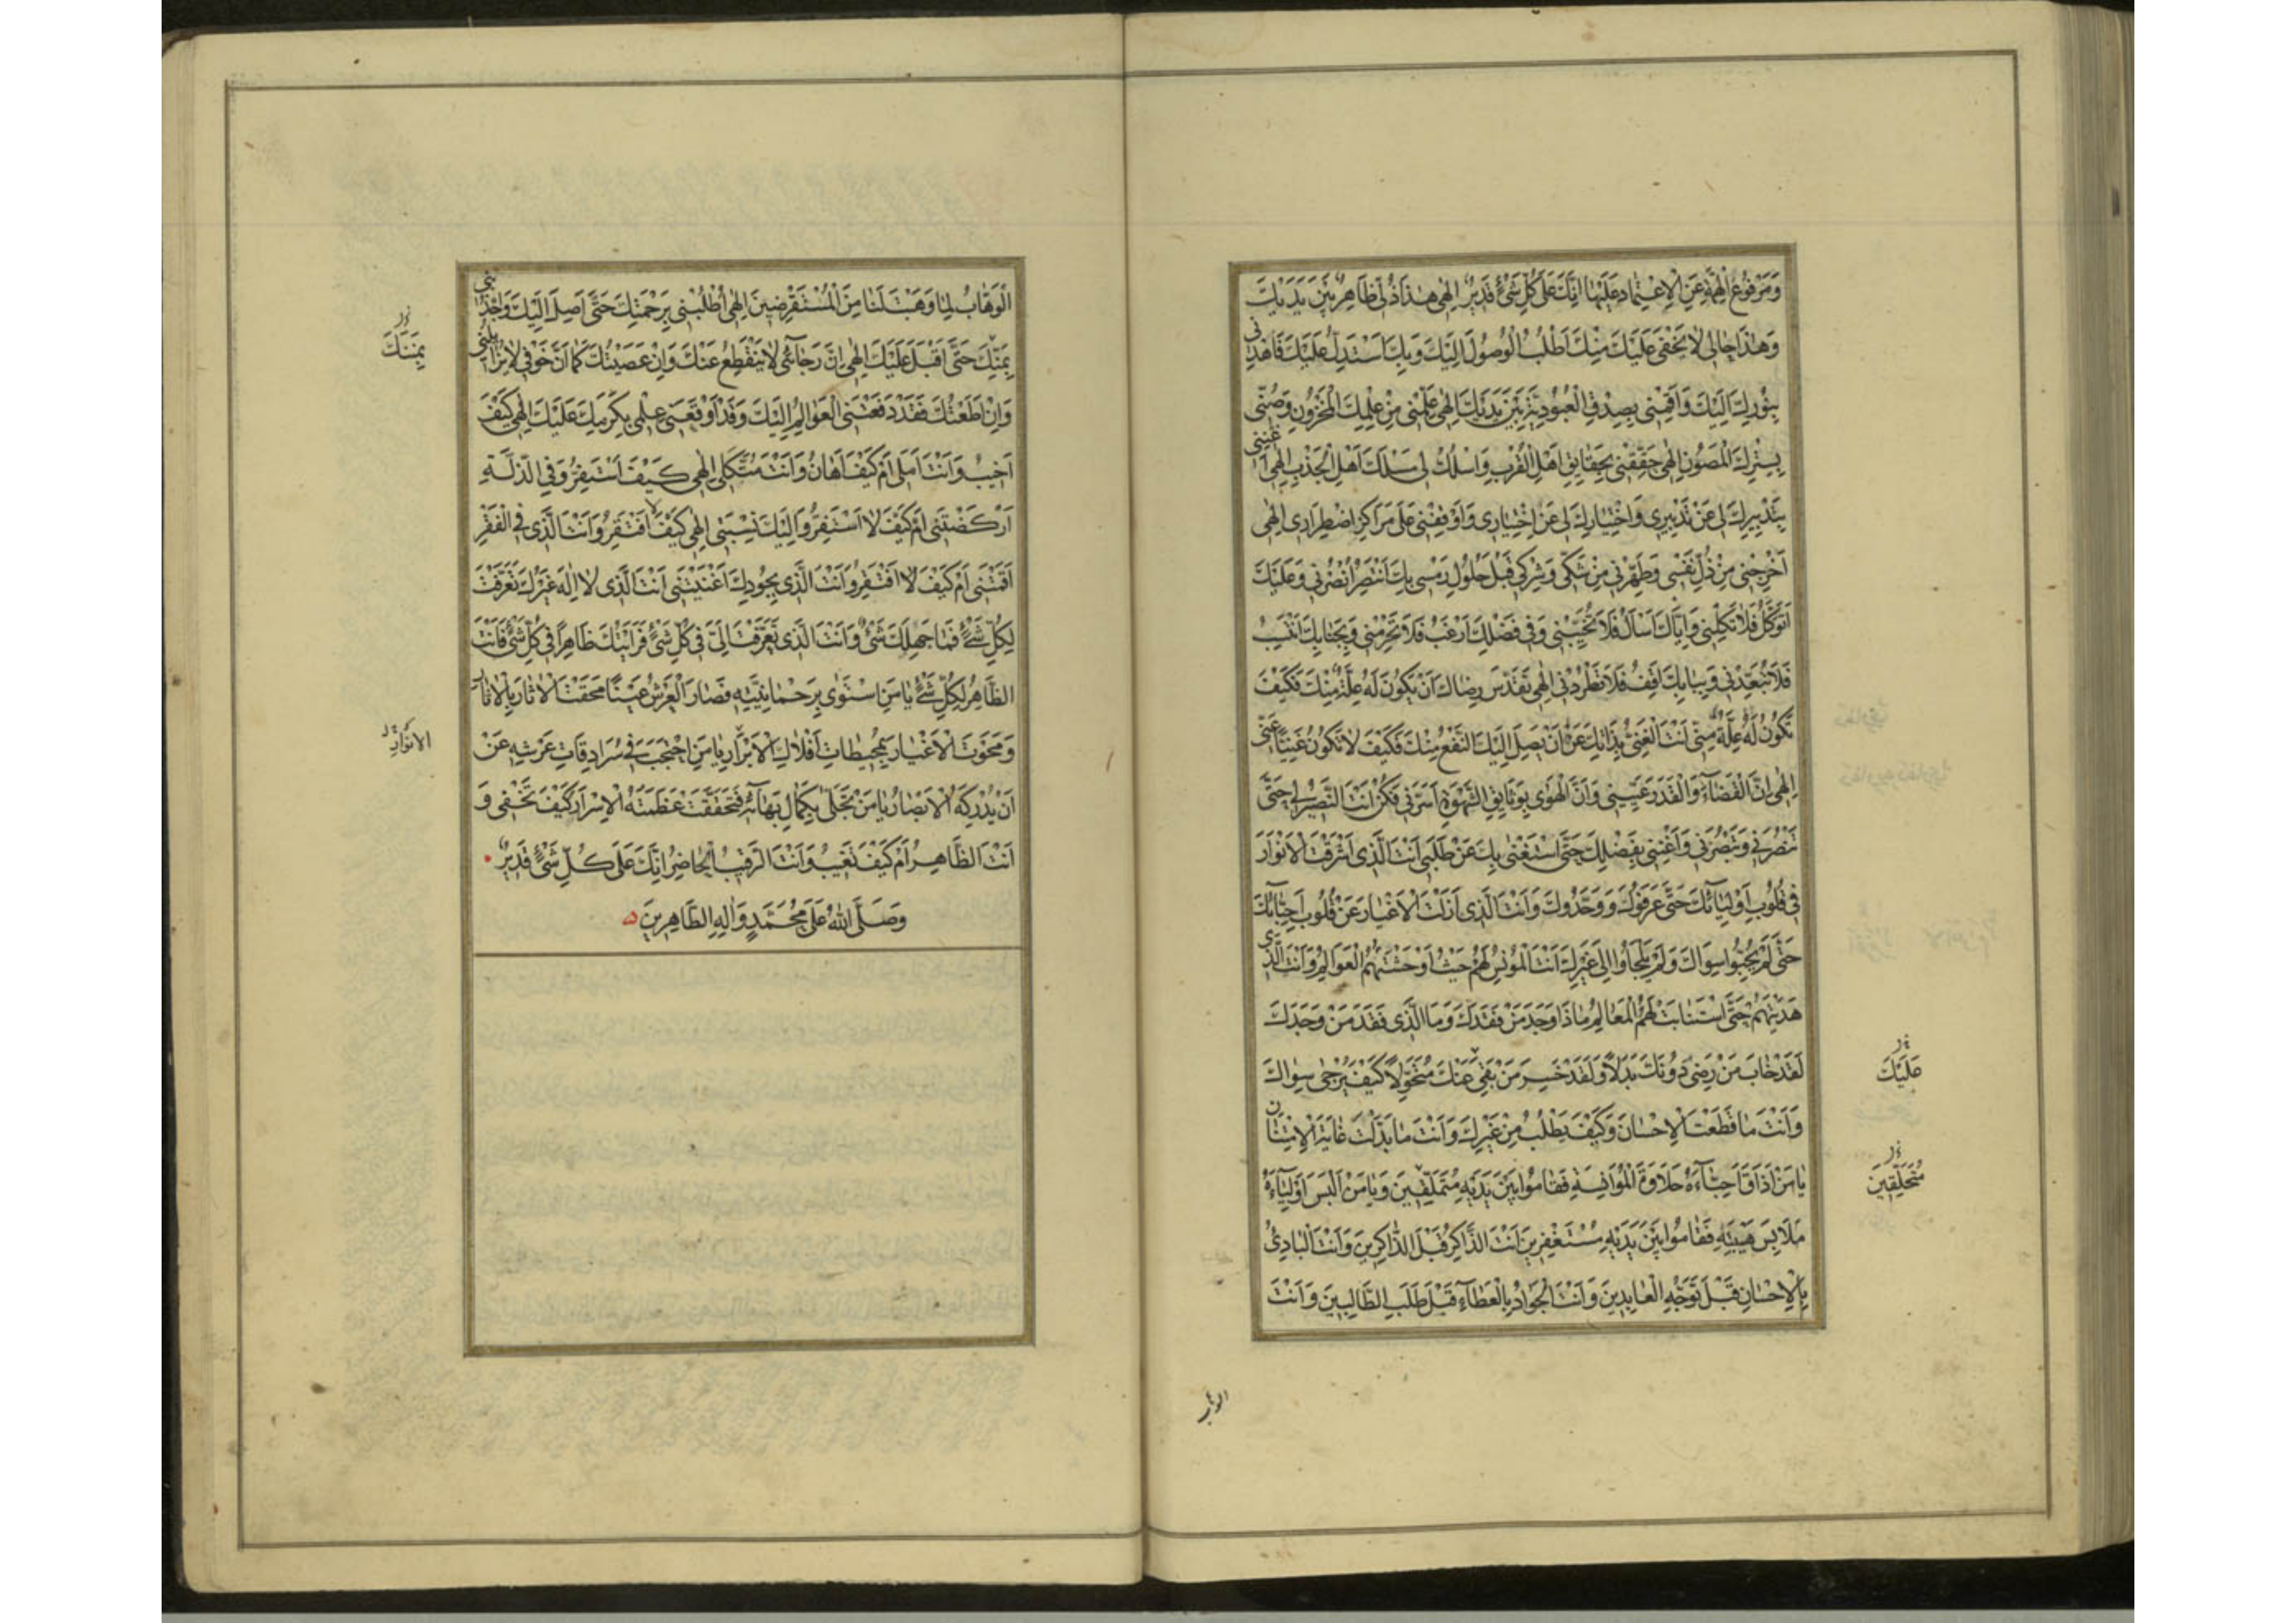 وَمَرْفُوعَ الْهِمَّةِ عَنِ الْاِعْتِمادِ عَلَيْها اِنَّكَ عَلى كُلِّ شَيْءٍ قَديرٌ اِلهي هذا ذُلّي ظاهِرٌ بَيْنَ يَدَيْكَ
وَهذا حالي لا يَخْفى عَلَيْكَ مِنْكَ اَطْلُبُ الْوُصُولَ اِلَيْكَ وَبِكَ اَسْتَدِلُّ عَلَيْكَ فَاهْدِني
بِنُورِكَ اِلَيْكَ وَاَقِمْني بِصِدْقِ الْعُبُودِيَّةِ بَيْنَ يَدَيْكَ اِلهي عَلِّمْني مِنْ عِلْمِكَ الْمَخْزُونِ وَصُنّي
بِسِتْرِكَ الْمَصُونِ اِلهي حَقِّقْني بِحَقايِقِ اَهْلِ الْقُرْبِ وَاسْلُكْ لي مَسْلَكَ اَهْلِ الْجَذْبِ اِلهي اَغْنِني
بِتَدْبيرِكَ لي عَنْ تَدْبيري وَاخْتِيارِكَ لي عَنْ اِخْتِياري وَاَوْقِفْني عَلى مَراكِزِ اضْطِراري اِلهي
اَخْرِجْني مِنْ ذُلِّ نَفْسي وَطَهِّرْني مِنْ شَكّي وَشِرْكي قَبْلَ حُلُولِ رَمْسي بِكَ اَنْتَصِرُ فَانْصُرْني وَعَلَيْكَ
اَتَوَكَّلُ فَلا تَكِلْني وَاِيّاكَ اَسْأَلُ فَلا تُخَيِّبْني وَفي فَضْلِكَ اَرْغَبُ فَلا تَحْرِمْني وَبِجَنابِكَ اَنْتَسِبُ
فَلا تُبَعِّدْني وَبِبابِكَ اَقِفُ فَلا تَطْرُدْني اِلهي تَقَدَّسَ رِضاكَ اَنْ يَكُونَ لَهُ عِلَّةٌ مِنْكَ فَكَيْفَ
تَكُونُ لَهُ عِلَّةٌ مِنّي اَنْتَ الْغَنِيُّ بِذاتِكَ عَنْ اَنْ يَصِلَ اِلَيْكَ النَّفْعُ مِنْكَ فَكَيْفَ لا تَكُونُ غَنِيّاً عَنّي
اِلهي اِنَّ الْقَضاءَ وَالْقَدَرَ وَاَنَّ الْهَوى بِوَثايِقِ الشَّهْوَةِ اَسَرَني فَكُنْ اَنْتَ النَّصيرَ لي حَتّى
تَنْصُرَني وَتُبَصِّرَني وَاَغْنِني بِفَضْلِكَ حَتّى اَسْتَغْنى بِكَ عَنْ طَلَبي اَنْتَ الَّذي اَشْرَقْتَ الْاَنْوارَ
في قُلُوبِ اَوْلِيائِكَ حَتّى عَرَفُوكَ وَوَحَّدُوكَ وَاَنْتَ الَّذي اَزَلْتَ الْاَغْيارَ عَنْ قُلُوبِ اَحِبّائِكَ
حَتّى لَمْ يُحِبُّوا سِواكَ وَلَمْ يَلْجَأُوا اِلى غَيْرِكَ اَنْتَ الْمُونِسُ لَهُمْ حَيْثُ اَوْحَشَتْهُمُ الْعَوالِمُ وَاَنْتَ الَّذي
هَدَيْتَهُمْ حَتّى اسْتَبانَتْ لَهُمُ الْمَعالِمُ ماذا وَجَدَ مَنْ فَقَدَكَ وَمَا الَّذي فَقَدَ مَنْ وَجَدَكَ
لَقَدْ خابَ مَنْ رَضِيَ دُونَكَ بَدَلاً وَلَقَدْ خَسِرَ مَنْ بَغى عَنْكَ مُتَحَوِّلاً كَيْفَ يُرْجى سِواكَ
عَلَيْكَ
وَاَنْتَ ما قَطَعْتَ الْاِحْسانَ وَكَيْفَ يُطْلَبُ مِنْ غَيْرِكَ وَاَنْتَ ما بَدَّلْتَ عادَةَ الْاِمْتِنانِ
يا مَنْ اَذاقَ اَحِبّاءَهُ حَلاوَةَ الْمُؤانَسَةِ فَقامُوا بَيْنَ يَدَيْهِ مُتَمَلِّقينَ وَيا مَنْ اَلْبَسَ اَوْلِياءَهُ
مَلابِسَ هَيْبَتِهِ فَقامُوا بَيْنَ يَدَيْهِ مُسْتَغْفِرينَ اَنْتَ الذّاكِرُ قَبْلَ الذّاكِرينَ وَاَنْتَ الْبادِئُ
بِالْاِحْسانِ قَبْلَ تَوَجُّهِ الْعابِدينَ وَاَنْتَ الْجَوادُ بِالْعَطاءِ قَبْلَ طَلَبِ الطّالِبينَ وَاَنْتَ
الوهاب
الْوَهّابُ لِما وَهَبْتَ لَنا مِنَ الْمُسْتَقْرِضينَ اِلهي اُطْلُبْني بِرَحْمَتِكَ حَتّى اَصِلَ اِلَيْكَ وَاجْذِبْني
بِمَنِّكَ حَتّى اُقْبِلَ عَلَيْكَ اِلهي اِنَّ رَجائي لا يَنْقَطِعُ عَنْكَ وَاِنْ عَصَيْتُكَ كَما اَنَّ خَوْفي لا يُزايِلُني
بِمَنِّكَ
وَاِنْ اَطَعْتُكَ فَقَدْ دَفَعَتْنِي الْعَوالِمُ اِلَيْكَ وَقَدْ اَوْقَعَني عِلْمي بِكَرَمِكَ عَلَيْكَ اِلهي كَيْفَ
اَخيبُ وَاَنْتَ اَمَلي اَمْ كَيْفَ اُهانُ وَاَنْتَ مُتَّكَلي اِلهي كَيْفَ اَسْتَعِزُّ وَفِي الذِّلَّةِ
اَرْكَزْتَني اَمْ كَيْفَ لا اَسْتَعِزُّ وَاِلَيْكَ نَسَبْتَني اِلهي كَيْفَ لا اَفْتَقِرُ وَاَنْتَ الَّذي فِي الْفَقْرِ
اَقَمْتَني اَمْ كَيْفَ لا اَفْتَقِرُ وَاَنْتَ الَّذي بِجُودِكَ اَغْنَيْتَني اَنْتَ الَّذي لا اِلهَ غَيْرُكَ تَعَرَّفْتَ
لِكُلِّ شَيْءٍ فَما جَهِلَكَ شَيْءٌ وَاَنْتَ الَّذي تَعَرَّفْتَ اِلَيَّ في كُلِّ شَيْءٍ فَرَأَيْتُكَ ظاهِراً في كُلِّ شَيْءٍ فَاَنْتَ
الظّاهِرُ لِكُلِّ شَيْءٍ يا مَنِ اسْتَوى بِرَحْمانِيَّتِهِ فَصارَ الْعَرْشُ غَيْباً مَحَقْتَ الْاثارَ بِالْاثارِ
وَمَحَوْتَ الْاَغْيارَ بِمُحيطاتِ اَفْلاكِ الْاَبْرارِ يا مَنِ احْتَجَبَ في سُرادِقاتِ عَرْشِهِ عَنْ
الانوار
اَنْ تُدْرِكَهُ الْاَبْصارُ يا مَنْ تَجَلّى بِكَمالِ بَهائِهِ فَتَحَقَّقَتْ عَظَمَتَهُ الْاَسْرارُ كَيْفَ تَخْفى وَ
اَنْتَ الظّاهِرُ اَمْ كَيْفَ تَغيبُ وَاَنْتَ الرَّقيبُ الْحاضِرُ اِنَّكَ عَلى كُلِّ شَيْءٍ قَديرٌ
وَصَلَّى اللّهُ عَلى مُحَمَّدٍ وَالِهِ الطّاهِرينَ